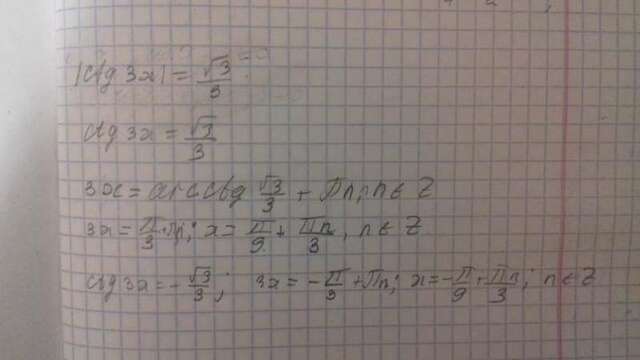 |ctg 3x| = √3/3 = 0
ctg 3x = √3/3
3x = arcctg √3/3 + πn, n ∈ Z
3x = π/3 + πn; x = π/9 + πn/3, n ∈ Z
ctg 3x = -√3/3; 3x = -π/3 + πn; x = -π/9 + πn/3; n ∈ Z